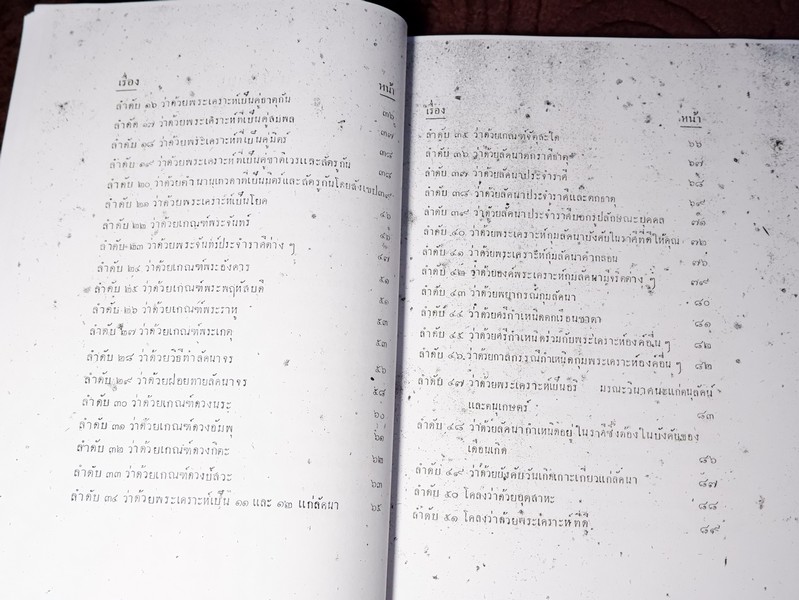 เรื่อง หน้า
ลำดับ ๑๖ ว่าด้วยพระเคราะห์เป็นคู่ธาตุกัน ๓๖
ลำดับ ๑๗ ว่าด้วยพระเคราะห์ที่เป็นคู่สมพล ๓๗
ลำดับ ๑๘ ว่าด้วยพระเคราะห์ที่เป็นคู่มิตร์ ๓๘
ลำดับ ๑๙ ว่าด้วยพระเคราะห์ที่เป็นคู่ชาติเวรและสัตรูกัน ๓๘
ลำดับ ๒๐ ว่าด้วยตำนานเทวดาที่เป็นมิตร์และสัตรูกันโดยสังเขป ๓๙
ลำดับ ๒๑ ว่าด้วยพระเคราะห์เป็นโยค ๔๖
ลำดับ ๒๒ ว่าด้วยเกณฑ์พระจันทร์ ๔๖
ลำดับ ๒๓ ว่าด้วยพระจันทร์ประจำราศีต่าง ๆ ๔๗
ลำดับ ๒๔ ว่าด้วยเกณฑ์พระอังคาร ๕๑
ลำดับ ๒๕ ว่าด้วยเกณฑ์พระพฤหัสบดี ๕๑
ลำดับ ๒๖ ว่าด้วยเกณฑ์พระราหู ๕๓
ลำดับ ๒๗ ว่าด้วยเกณฑ์พระเกตุ ๕๓
ลำดับ ๒๘ ว่าด้วยวิธีทำลัคนาจร ๕๖
ลำดับ ๒๙ ว่าด้วยฝอยทายลัคนาจร ๕๘
ลำดับ ๓๐ ว่าด้วยเกณฑ์ดวงนระ ๖๐
ลำดับ ๓๑ ว่าด้วยเกณฑ์ดวงอัมพุ ๖๑
ลำดับ ๓๒ ว่าด้วยเกณฑ์ดวงกีตะ ๖๒
ลำดับ ๓๓ ว่าด้วยเกณฑ์ดวงปัสวะ ๖๓
ลำดับ ๓๔ ว่าด้วยพระเคราะห์เป็น ๑๑ และ ๑๒ แก่ลัคนา ๖๕
เรื่อง หน้า
ลำดับ ๓๕ ว่าด้วยเกณฑ์จัตุสะโด ๖๖
ลำดับ ๓๖ ว่าด้วยลัคนาตกราศีธาตุ ๖๗
ลำดับ ๓๗ ว่าด้วยลัคนาประจำราศี ๖๘
ลำดับ ๓๘ ว่าด้วยลัคนาประจำราศีและตกธาตุ ๖๙
ลำดับ ๓๙ ว่าด้วยลัคนาประจำราศีบอกรูปลักษณะบุคคล ๗๑
ลำดับ ๔๐ ว่าด้วยพระเคราะห์กุมลัคนาบังคับในราศีที่ดีให้คุณ ๗๒
ลำดับ ๔๑ ว่าด้วยพระเคราะห์กุมลัคนาคำกลอน ๗๖
ลำดับ ๔๒ ว่าด้วยองค์พระเคราะห์กุมลัคนามีจริตต่าง ๆ ๗๙
ลำดับ ๔๓ ว่าด้วยพยากรณ์กุมลัคนา ๘๐
ลำดับ ๔๔ ว่าด้วยศรีกำเหนิดตกเรือนชาตา ๘๑
ลำดับ ๔๕ ว่าด้วยศรีกำเหนิดร่วมกับพระเคราะห์องค์อื่น ๆ ๘๒
ลำดับ ๔๖ ว่าด้วยกาลกรรณีกำเหนิดกุมพระเคราะห์องค์อื่น ๆ ๘๒
ลำดับ ๔๗ ว่าด้วยพระเคราะห์เป็นอริ มรณะวินาศนะแก่ตนุลัคน์
และตนุเกษตร์ ๘๓
ลำดับ ๔๘ ว่าด้วยลัคนากำเหนิดอยู่ในราศีซึ่งต้องในบังคับของ
เดือนเกิด ๘๖
ลำดับ ๔๙ ว่าด้วยบังคับวันเกิดเกาะเกี่ยวแก่ลัคนา ๘๗
ลำดับ ๕๐ โคลงว่าด้วยอุตสาหะ ๘๘
ลำดับ ๕๑ โคลงว่าด้วยพระเคราะห์ที่ดี ๘๙